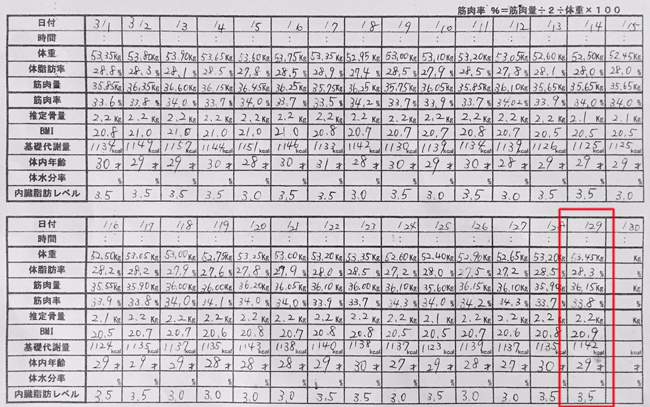 筋肉率 %＝筋肉量÷2÷体重×100
日付 3/1 3/2 /3 /4 /5 /6 /7 /8 /9 /10 /11 /12 /13 /14 /15
時間 : : : : : : : : : : : : : : :
体重 53.35Kg 53.80Kg 53.90Kg 53.65Kg 53.60Kg 53.75Kg 53.35Kg 52.95Kg 53.00Kg 53.10Kg 53.20Kg 53.05Kg 52.60Kg 52.50Kg 52.45Kg
体脂肪率 28.8% 28.3% 28.1% 28.5% 27.8% 28.5% 28.9% 27.4% 28.5% 27.9% 28.5% 27.8% 28.1% 28.0% 28.0%
筋肉量 35.85Kg 36.35Kg 36.60Kg 36.15Kg 36.45Kg 36.25Kg 35.75Kg 36.25Kg 35.75Kg 36.05Kg 35.85Kg 36.10Kg 35.65Kg 35.65Kg 35.65Kg
筋肉率 33.6% 33.8% 34.0% 33.7% 34.0% 33.7% 33.5% 34.2% 33.7% 33.9% 33.7% 34.0% 33.9% 34.0% 34.0%
推定骨量 2.2Kg 2.2Kg 2.2Kg 2.2Kg 2.2Kg 2.2Kg 2.2Kg 2.2Kg 2.2Kg 2.2Kg 2.2Kg 2.2Kg 2.2Kg 2.1Kg 2.1Kg
BMI 20.8 21.0 21.0 21.0 21.0 20.8 20.7 20.7 20.7 20.8 20.7 20.5 20.5 20.5
基礎代謝量 1134kcal 1149kcal 1157kcal 1144kcal 1151kcal 1146kcal 1133kcal 1142kcal 1130kcal 1139kcal 1134kcal 1139kcal 1126kcal 1125kcal 1125kcal
体内年齢 30才 29才 29才 30才 28才 30才 31才 28才 30才 29才 30才 28才 29才 29才 29才
体水分率 % % % % % % % % % % % % % % %
内臓脂肪レベル 3.5 3.5 3.5 3.5 3.0 3.5 3.5 3.0 3.5 3.0 3.5 3.0 3.5 3.5 3.0
日付 /16 /17 /18 /19 /20 /21 /22 /23 /24 /25 /26 /27 /28 /29 /30
時間 : : : : : : : : : : : : : : :
体重 52.50Kg 53.05Kg 53.00Kg 52.75Kg 53.25Kg 53.00Kg 53.20Kg 53.35Kg 52.60Kg 52.40Kg 52.90Kg 52.65Kg 53.20Kg 53.45Kg Kg
体脂肪率 28.2% 28.2% 27.9% 27.6% 27.8% 27.9% 28.0% 28.5% 27.2% 28.0% 27.5% 27.2% 28.5% 28.3% %
筋肉量 35.55Kg 35.90Kg 36.00Kg 36.00Kg 36.20Kg 36.05Kg 36.10Kg 36.00Kg 36.10Kg 35.60Kg 36.15Kg 36.10Kg 35.90Kg 36.15Kg Kg
筋肉率 33.9% 33.8% 34.0% 34.1% 34.0% 34.0% 33.9% 33.7% 34.3% 34.0% 34.2% 34.3% 33.7% 33.8% %
推定骨量 2.1Kg 2.2Kg 2.2Kg 2.2Kg 2.2Kg 2.2Kg 2.2Kg 2.2Kg 2.2Kg 2.1Kg 2.2Kg 2.2Kg 2.2Kg 2.2Kg Kg
BMI 20.5 20.7 20.7 20.6 20.8 20.7 20.8 20.8 20.5 20.5 20.7 20.6 20.8 20.9
基礎代謝量 1124kcal 1135kcal 1137kcal 1135kcal 1143kcal 1138kcal 1140kcal 1138kcal 1137kcal 1123kcal 1139kcal 1137kcal 1135kcal 1142kcal kcal
体内年齢 29才 29才 29才 28才 28才 28才 29才 30才 27才 29才 28才 27才 30才 29才 才
体水分率 % % % % % % % % % % % % % % %
内臓脂肪レベル 3.5 3.5 3.0 3.0 3.0 3.0 3.5 3.5 3.0 3.0 3.0 3.0 3.5 3.5